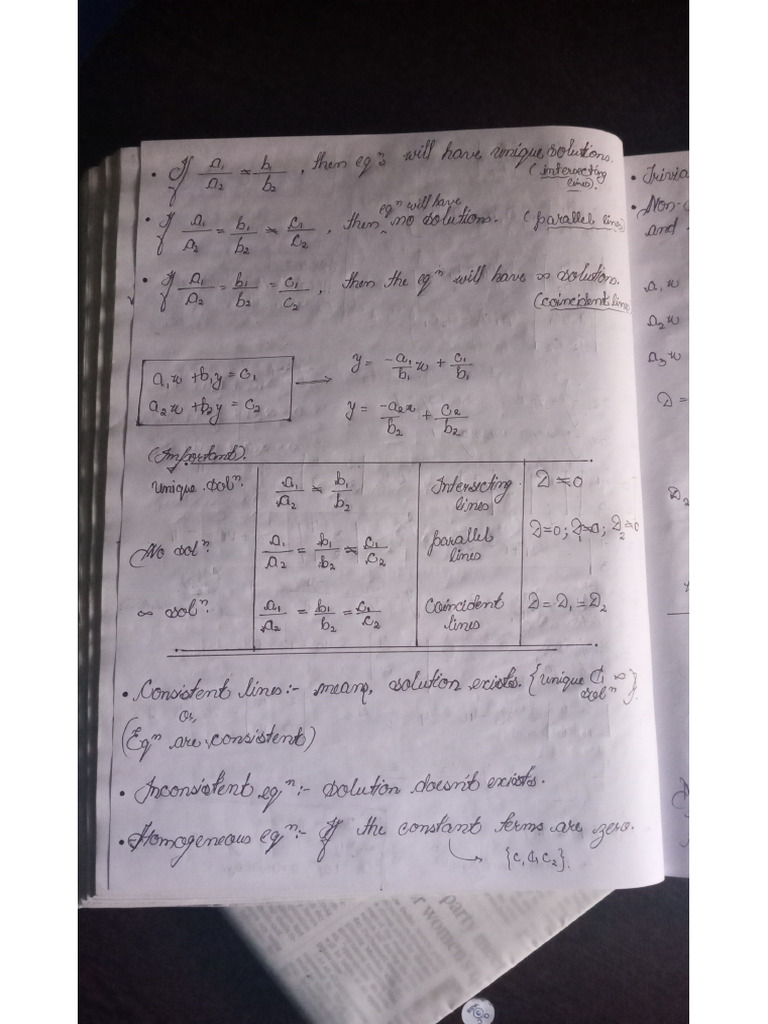 • If a₁/a₂ ≠ b₁/b₂, then eqⁿs will have unique solutions.
(intersecting lines).
• If a₁/a₂ = b₁/b₂ ≠ c₁/c₂, then eqⁿ will have no solutions. (parallel lines)
• If a₁/a₂ = b₁/b₂ = c₁/c₂, then the eqⁿ will have ∞ solutions.
(coincident lines)
a₁x + b₁y = c₁ → y = -a₁/b₁ x + c₁/b₁
a₂x + b₂y = c₂ y = -a₂x/b₂ + c₂/b₂
(Important).
Unique solⁿ. a₁/a₂ ≠ b₁/b₂ Intersecting lines D ≠ 0
No solⁿ. a₁/a₂ = b₁/b₂ ≠ c₁/c₂ parallel lines D=0; D₁≠0; D₂≠0
∞ solⁿ. a₁/a₂ = b₁/b₂ = c₁/c₂ Coincident lines D = D₁ = D₂
• Consistent lines:- means, solution exists. {unique & ∞ solⁿ}.
or,
(Eqⁿ are consistent)
• Inconsistent eqⁿ:- solution doesn't exists.
• Homogeneous eqⁿ:- If the constant terms are zero.
→ {c₁ & c₂}.
• Trivia
• Non-
and
a₁x
a₂x
a₃x
D =
D₂
party
women